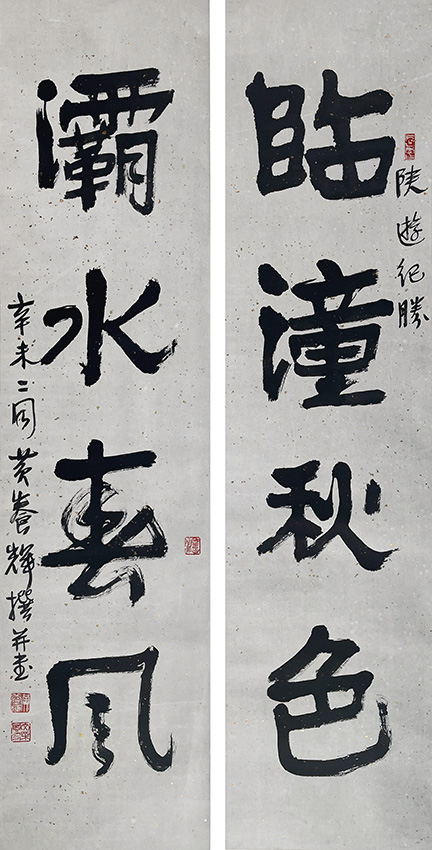 陝遊紀勝
臨潼秋色
灞水春風
辛未二 黃養輝撰并書